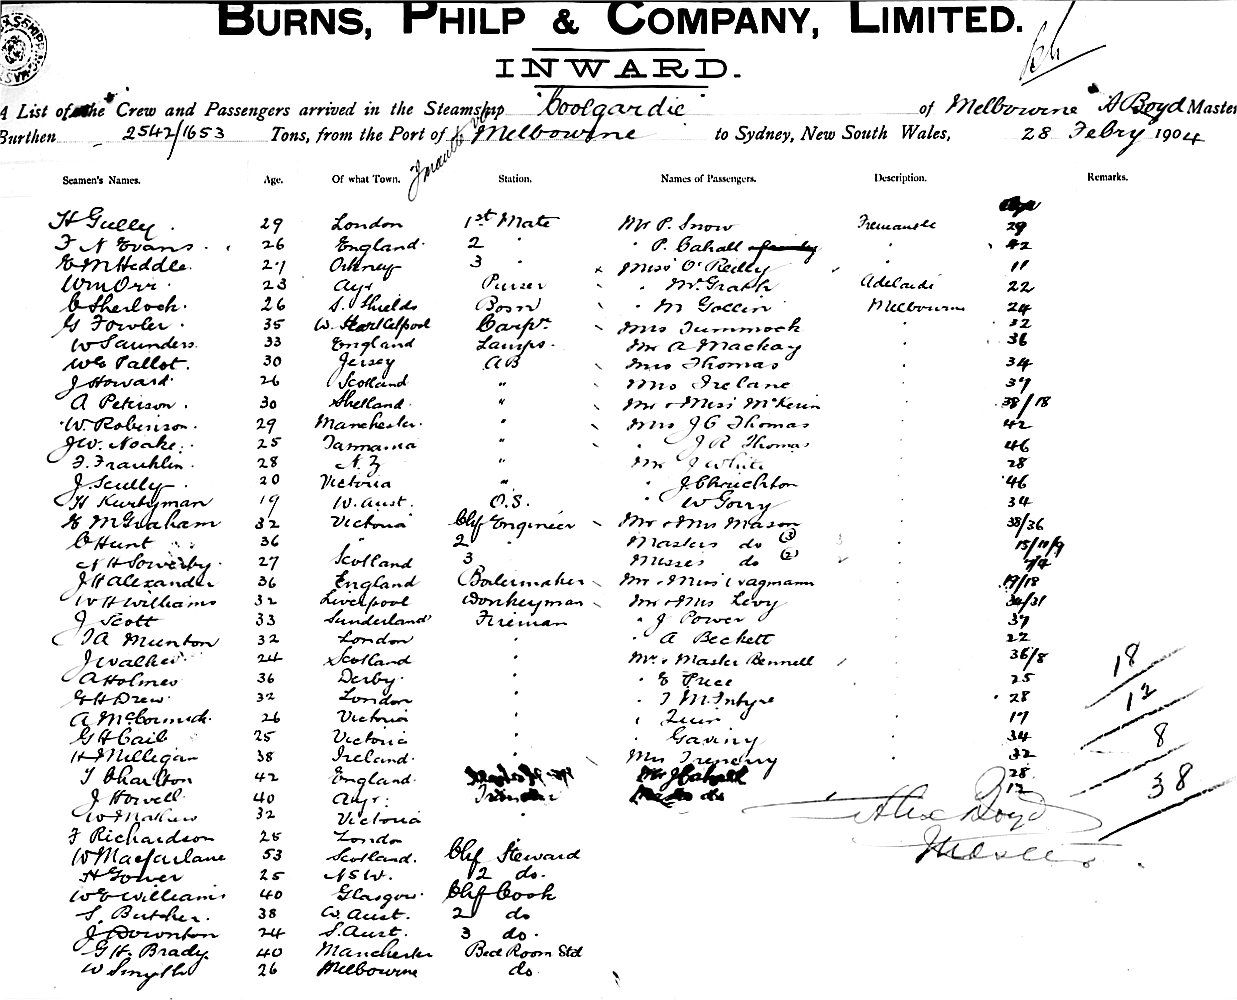 BURNS, PHILP & COMPANY, LIMITED.
INWARD.
A List of the Crew and Passengers arrived in the Steamship "Coolgardie" of Melbourne A Boyd Master
Burthen 2542/1653 Tons, from the Port of Melbourne to Sydney, New South Wales, 28 Febry 1904
Seamen's Names. Age. Of what Town. Station. Names of Passengers. Description. Remarks.
H Gully 29 London 1st Mate Mr P. Snow Fremantle 29
F N Evans 26 England 2 " P. Cahall 42
Heddle 27 Orkney 3 " Miss O'Reilly 11
Wm Orr 23 Ayr Purser " McGrath Adelaide 22
C Sherlock 26 S. Shields Bosn " M Gollin Melbourne 24
G Fowler 35 W. Hartlepool Carpr. Mrs Tummock 32
W Saunders 33 England Lamps. Mr A Mackay 36
W E Pallot 30 Jersey AB Mrs Thomas 34
J Howard 26 Scotland " Mrs Irelane 37
A Peterson 30 Shetland " Mr & Miss McKerin 38/18
W. Robinson 29 Manchester " Mrs J G Thomas 42
J W. Noake 25 Tasmania " " J R Thomas 46
F. Franklin 28 N.Z " Mr J White 28
J. Scully 20 Victoria " " J Chrichton 46
H Kurtyman 19 W. Aust. O.S. " W Gorry 34
McGraham 32 Victoria Chf Engineer Mr & Mrs Mason 38/36
C Hunt 36 " 2 " Masters do (3) 15/11/9
N H Sowerby 27 Scotland 3 Misses do (2) 7/4
J H Alexander 36 England Boilermaker Mr & Miss Wagmann 19/18
W H Williams 32 Liverpool Donkeyman Mr & Mrs Levy 34/31
J Scott 33 Sunderland Fireman " J Power 37
T A Munton 32 London " " A Beckett 22
J Walker 24 Scotland " Mr & Master Bennell 36/8
A Holmes 36 Derby " " E Price 25
G H Drew 32 London " " J McIntyre 28
A McCormick 26 Victoria " " 17
G H Cail 25 Victoria " " Gaviny 34
H Milligan 38 Ireland " Mrs Trenery 32
T Charlton 42 England Mr J Cahall 28
J Howell 40 Ayr Trimmer do 12
32 Victoria "
F Richardson 25 London "
W Macfarlane 53 Scotland. Chf Steward
H Gower 25 N S W. 2 do.
W E Williams 40 Glasgow Chf Cook
S. Butcher 38 W. Aust. 2 do
J Downton 24 S. Aust. 3 do.
G H. Brady 40 Manchester Bed Room Std
W Smyth 26 Melbourne do.
18
12
8
38
Alex Boyd
Master